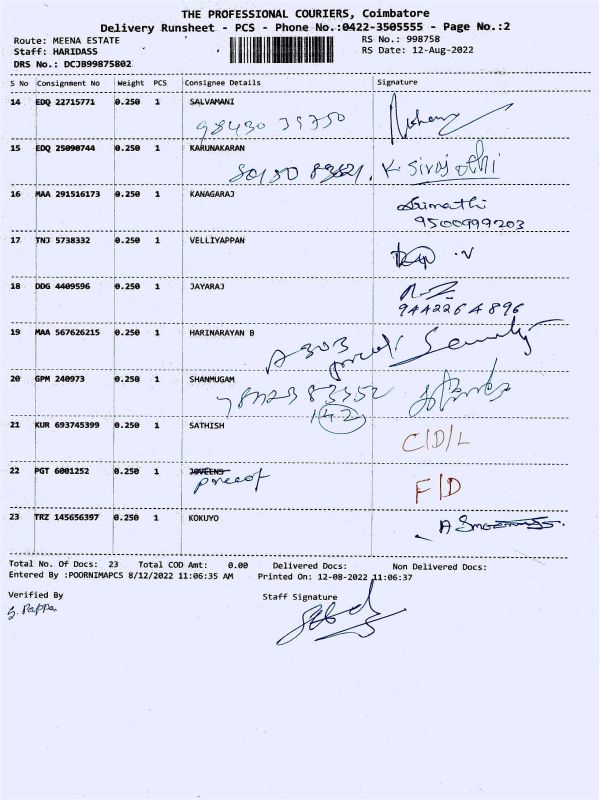 THE PROFESSIONAL COURIERS, Coimbatore
Delivery Runsheet - PCS - Phone No.:0422-3505555 - Page No.:2
Route: MEENA ESTATE RS No.: 998758
Staff: HARIDASS RS Date: 12-Aug-2022
DRS No.: DCJB99875802
S No Consignment No Weight PCS Consignee Details Signature
14 EDQ 22715771 0.250 1 SALVAMANI
98430 39750
15 EDQ 25090744 0.250 1 KARUNAKARAN
16 MAA 291516173 0.250 1 KANAGARAJ
Srimathi
9500999203
17 TNJ 5738332 0.250 1 VELLIYAPPAN
18 DDG 4409596 0.250 1 JAYARAJ
9442264896
19 MAA 567626215 0.250 1 HARINARAYAN B
A 303
Security
20 GPM 240973 0.250 1 SHANMUGAM
142
21 KUR 693745399 0.250 1 SATHISH
C/D/L
22 PGT 6001252 0.250 1 JOVEENS
F/D
23 TRZ 145656397 0.250 1 KOKUYO
Total No. Of Docs: 23 Total COD Amt: 0.00 Delivered Docs: Non Delivered Docs:
Entered By :POORNIMAPCS 8/12/2022 11:06:35 AM Printed On: 12-08-2022 11:06:37
Verified By Staff Signature
S. Pappa